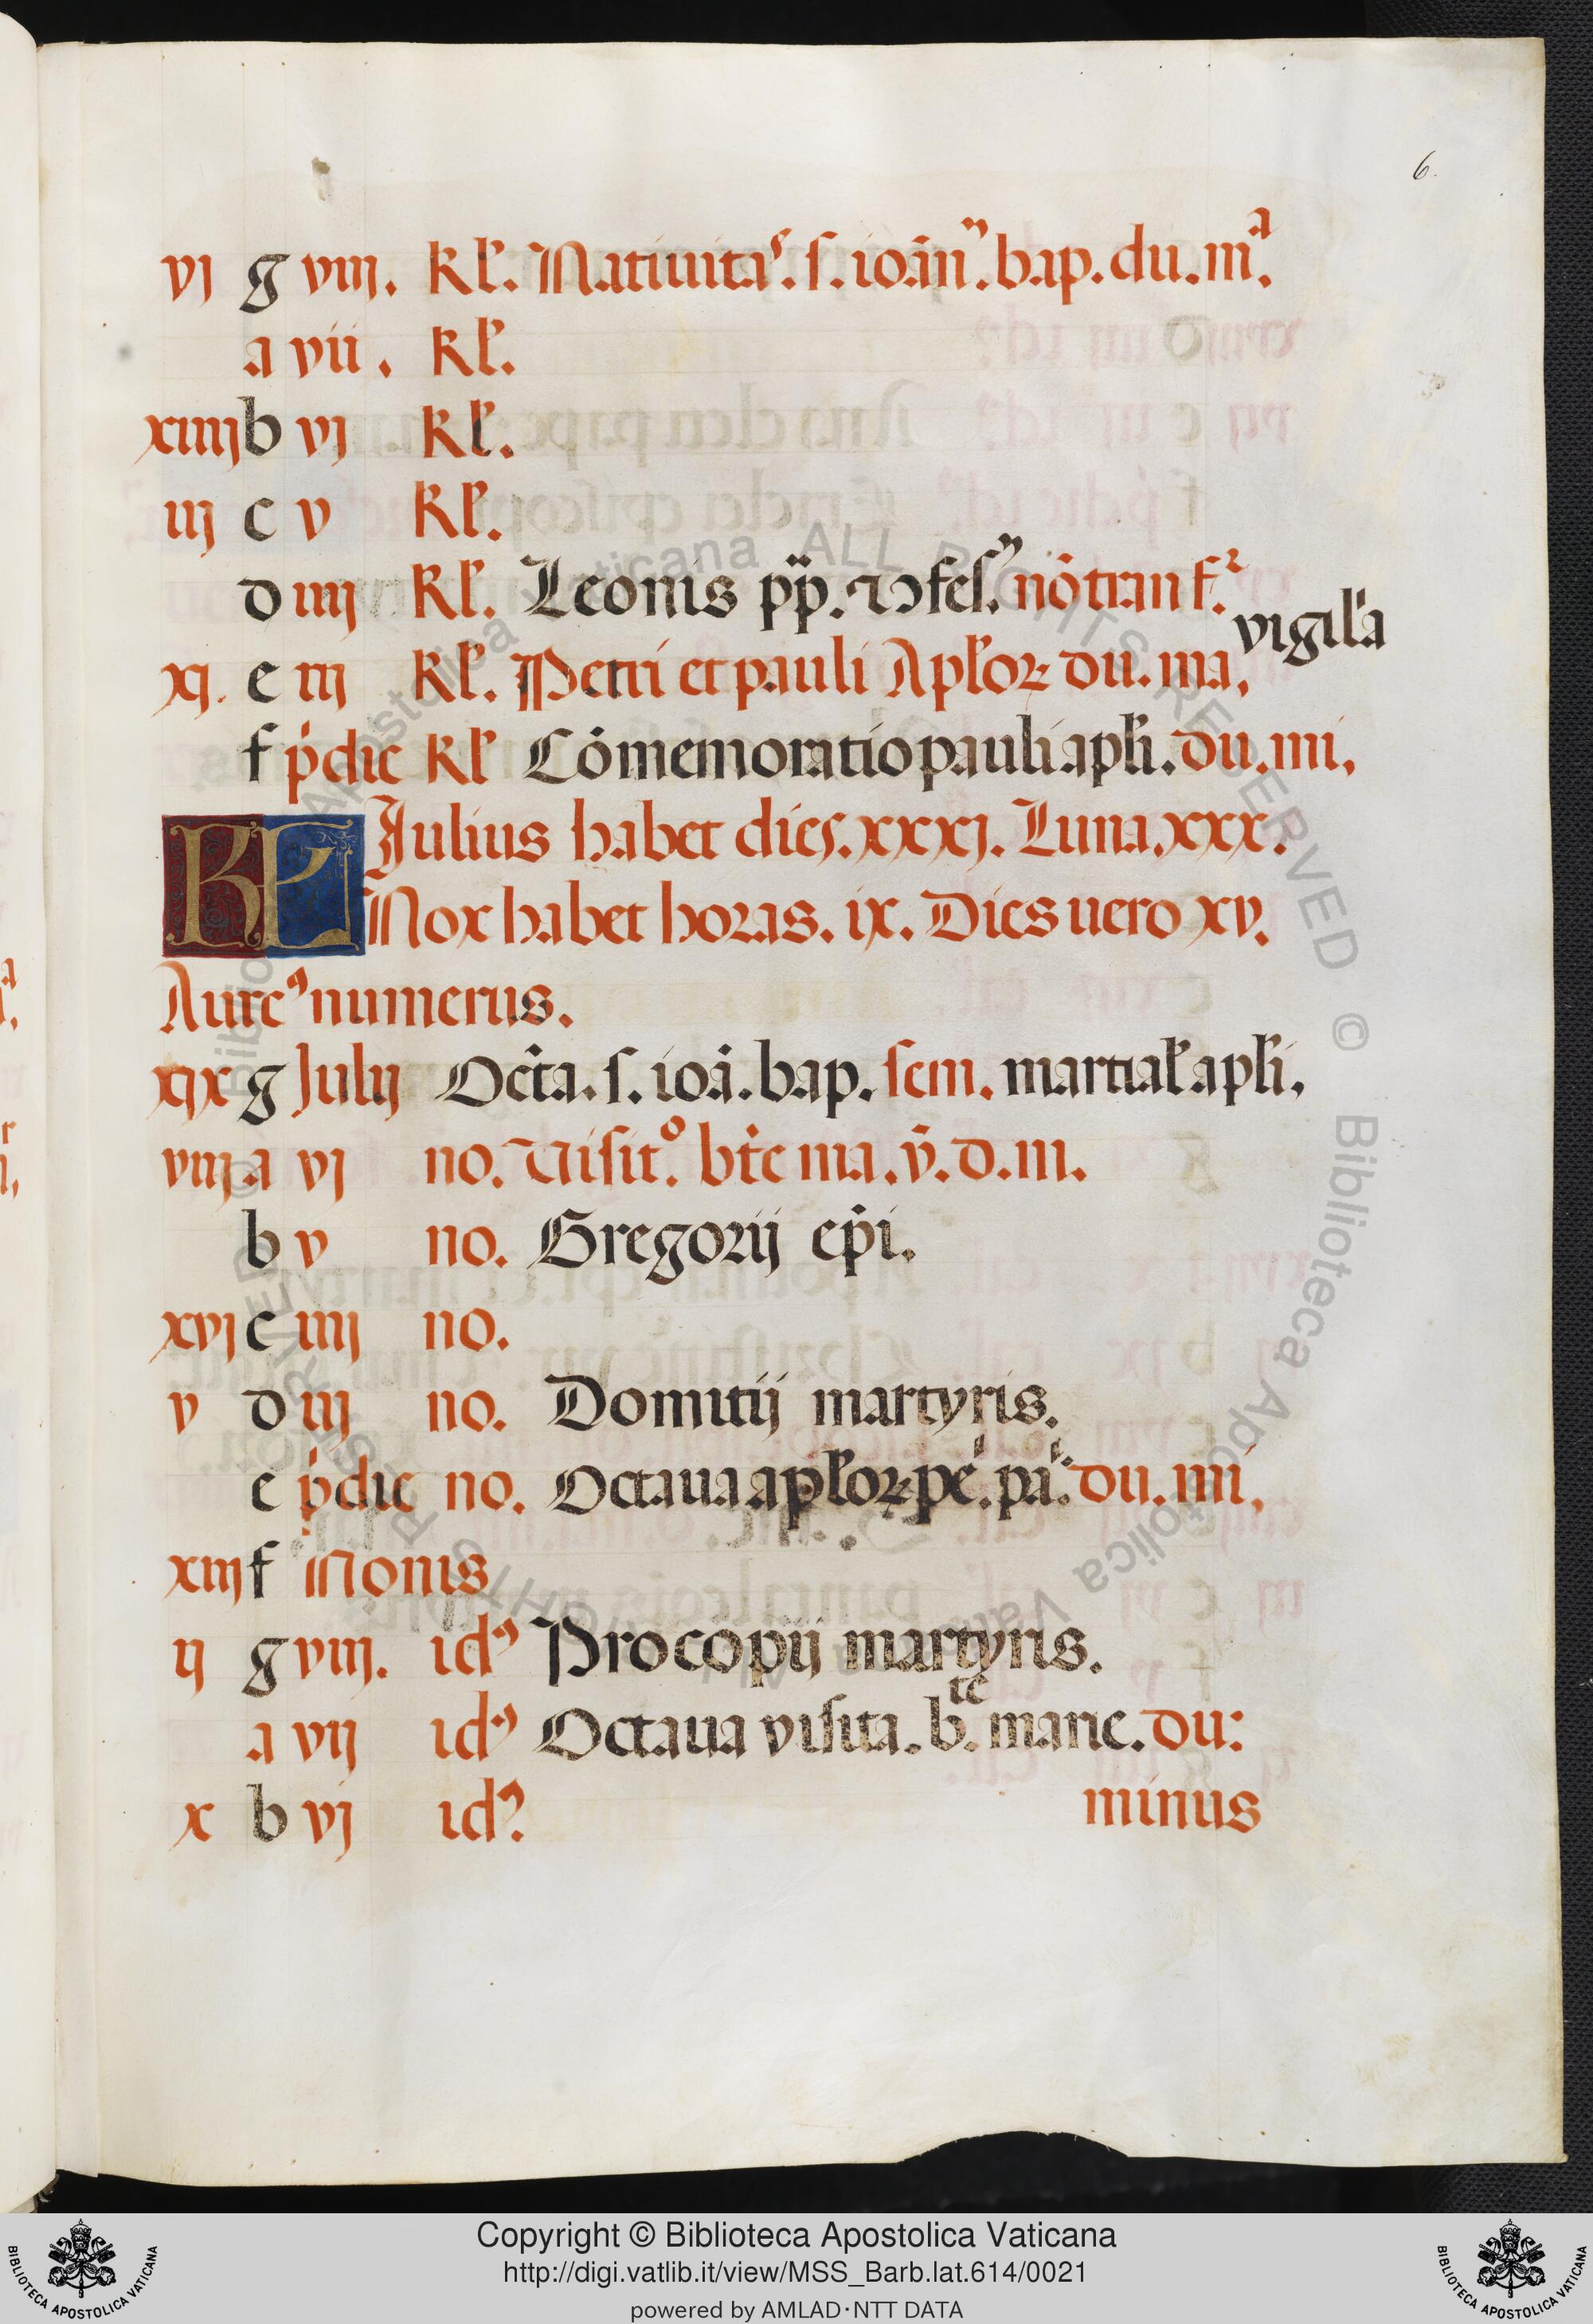 6.
vj g viij. kl̓. Natiuitaˢ. s. ioān̄. bap. du. mᵃ.
a vii. kl̓.
xiiij b vj kl̓.
iij c v kl̓.
d iiij kl̓. Leonis pp̄. ꝯfes. nō tranf.
vigil̓a
xj. e iij kl̓. Petri et pauli Apl̓oꝝ du. ma,
f p̓die kl̓ Cōmemoratio pauli apl̓i. du. mi,
KL Julius habet dies. xxxj. Luna. xxx.
Nox habet horas. ix. Dies uero xv.
Aureꝰ numerus.
xix g Julij Oct̄a. s. ioā. bap. sem. martial̓ apl̓i.
viij a vj no. Uisitᵒ. bt̄e ma. v̄. d. m.
b v no. Gregorij ep̄i.
xvj c iiij no.
v d iij no. Domitij martyris.
e p̓die no. Octaua apl̓oꝝ pe. pa. du. mi,
xiij f Nonis
ij g viij. idꝰ Procopij martyris.
a vij idꝰ Octaua visita. b.ᵗᵉ marie. du:
x b vj idꝰ minus
Copyright © Biblioteca Apostolica Vaticana
http://digi.vatlib.it/view/MSS_Barb.lat.614/0021
powered by AMLAD·NTT DATA
BIBLIOTECA APOSTOLICA VATICANA
BIBLIOTECA APOSTOLICA VATICANA